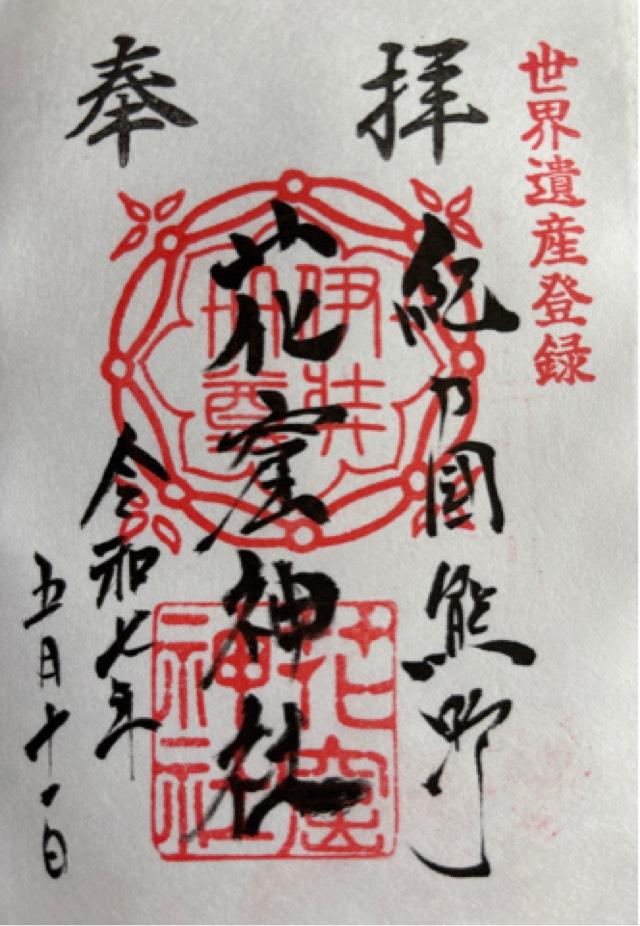 世界遺産登録
奉拝
紀乃國熊野
花窟神社
令和七年
五月十一日
伊弉冊尊
花窟神社